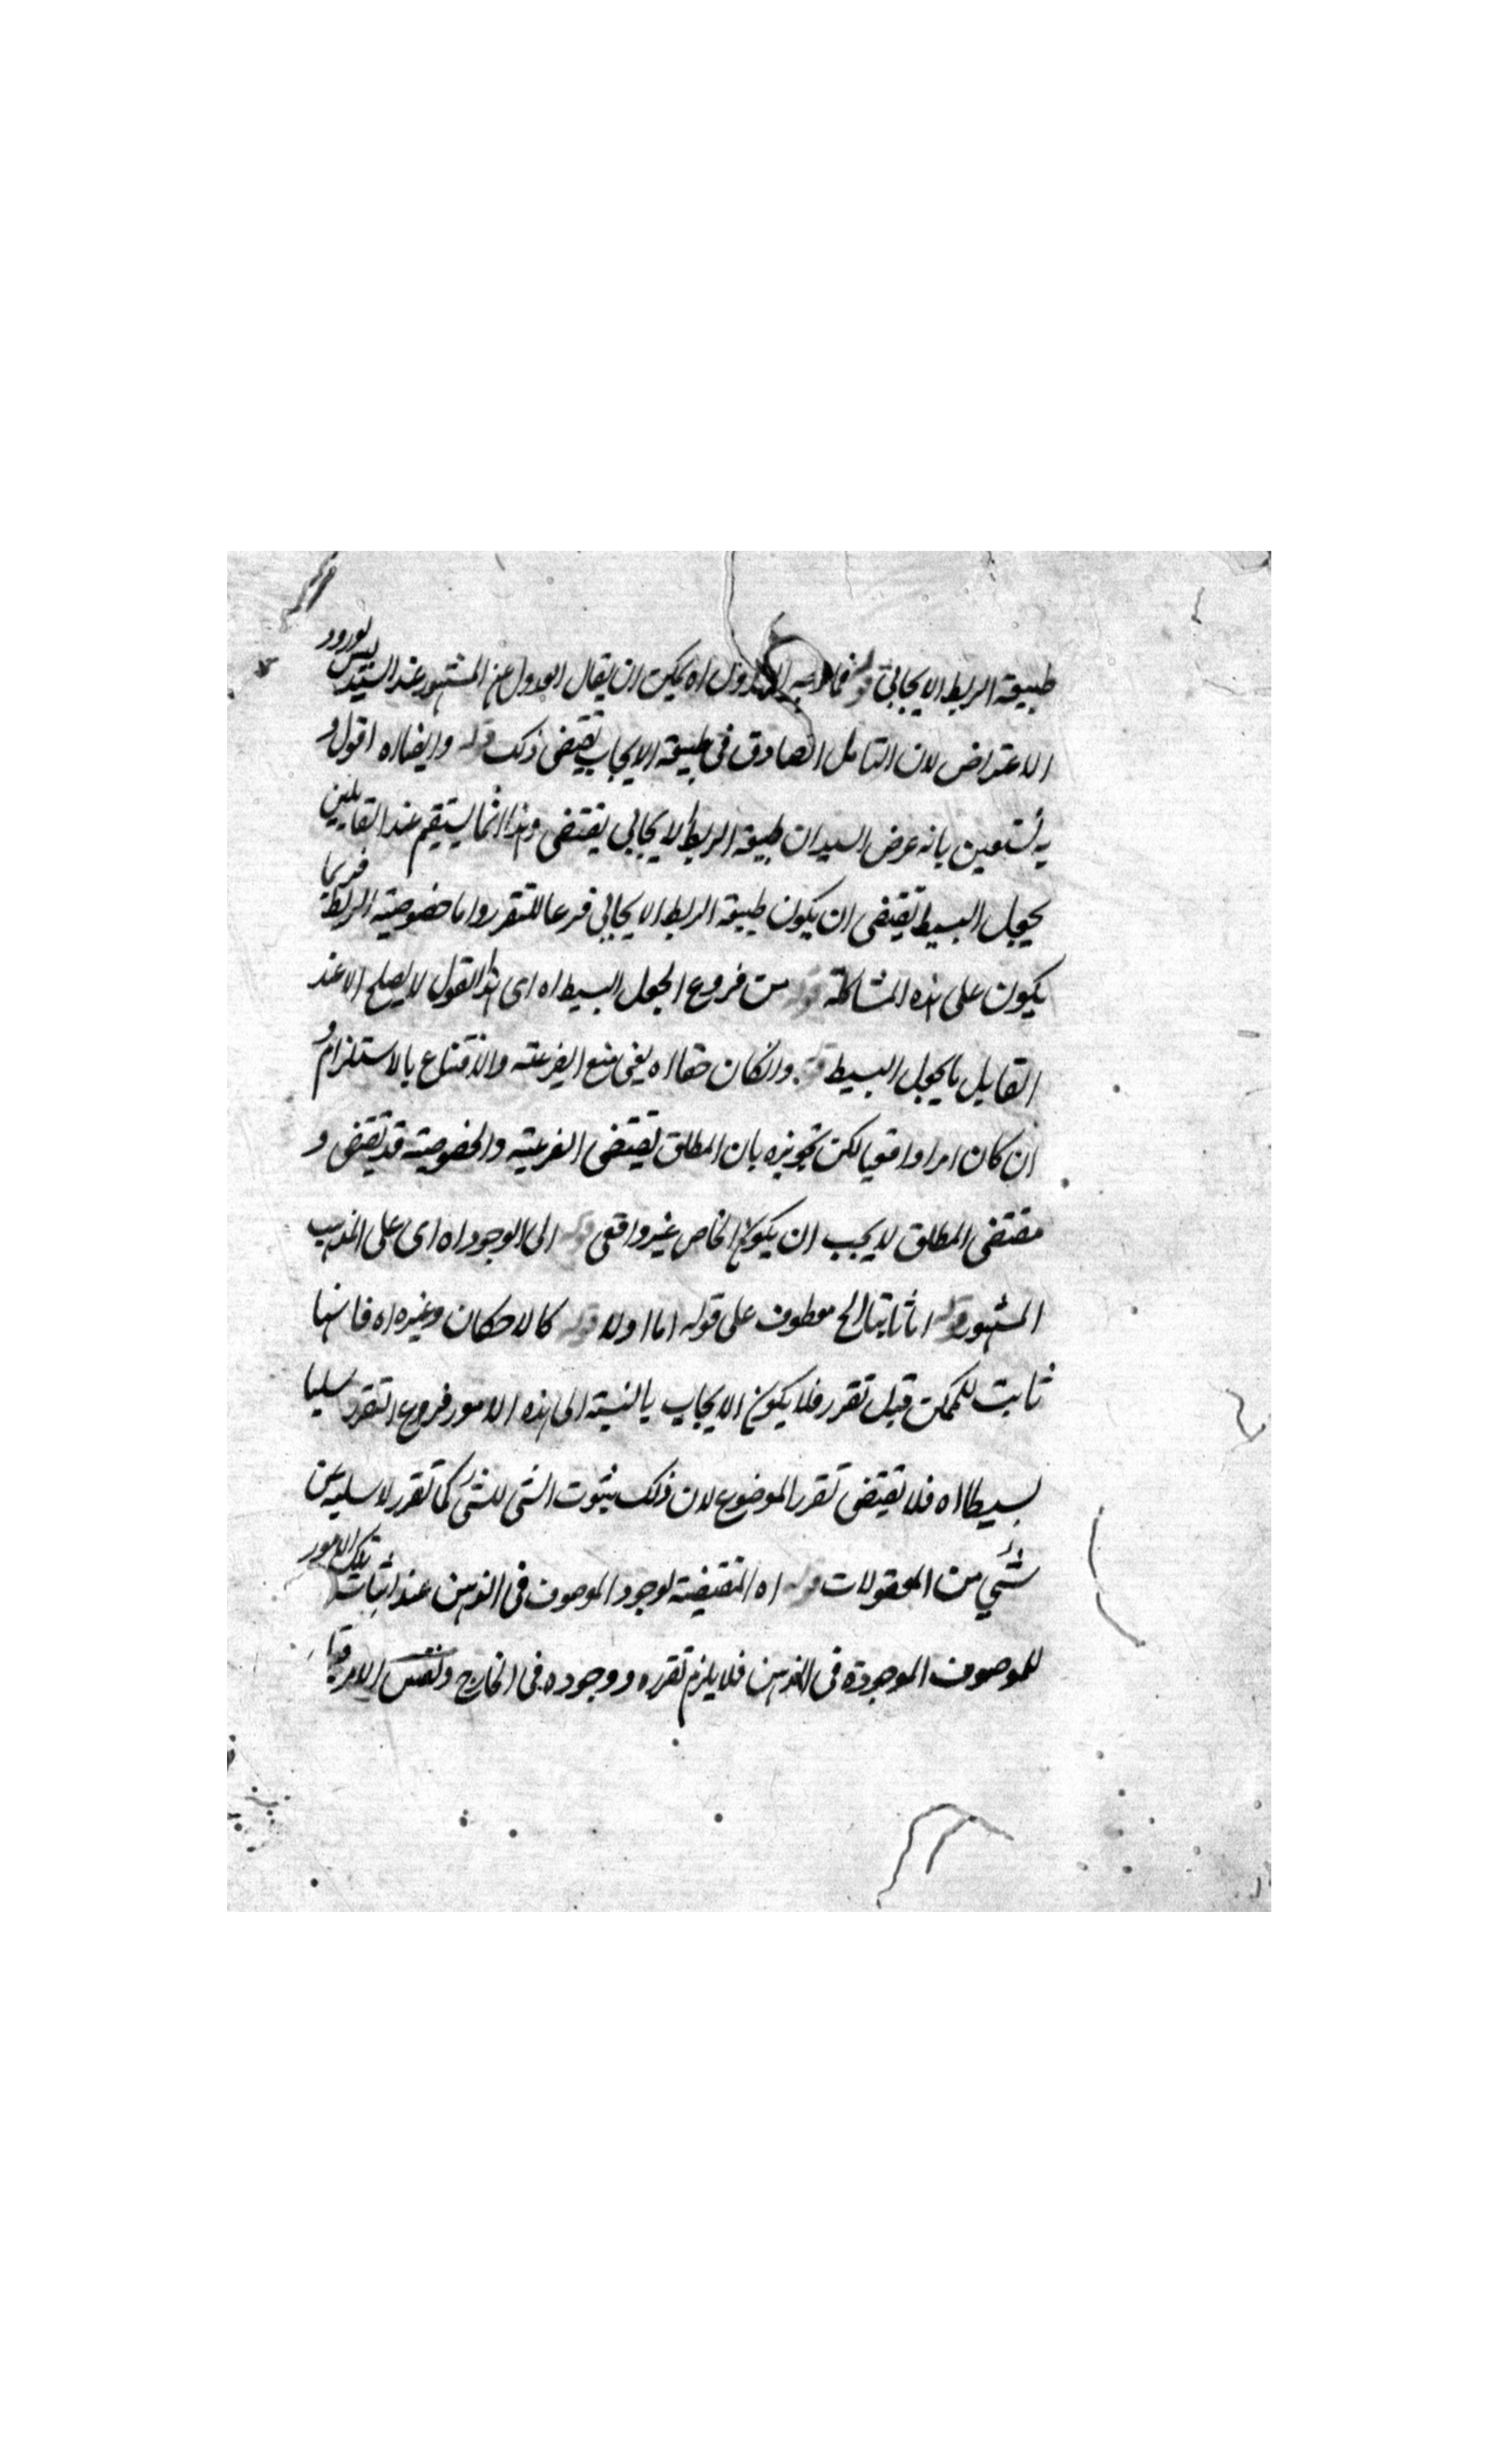 طبيعة الربط الايجابي قوله فما وجه العدول اه يمكن ان يقال العدول عن المشهور عند السيد ليس لورود
الاعتراض لان التامل الصادق في طبيعة الايجاب يقتضي ذلك قوله وايضا اه اقول و
به نستعين بانه غرض السيد ان طبيعة الربط الايجابي يقتضي وهذا انما يستقيم عند القايلين
بجعل البسيط يقتضي ان يكون طبيعة الربط الايجابي فرعا للتقرر واما خصوصية الربط فربما
يكون على هذه المشاكلة قوله من فروع الجعل البسيط اه اى هذا القول لا يصلح الا عند
القايل بالجعل البسيط قوله وانكان حقا اه يعنى منع الفرعية والاقتناع بالاستلزام و
ان كان امرا واقعيا لكن تجويزه بان المطلق يقتضى الفرعية والخصوصية قد تقتضى و
مقتضى المطلق لا يجب ان يكون الخاص غير واقعى قوله الى الوجود اه اى على المذهب
المشهور قوله اما ثانيا الخ معطوف على قوله اما اولا قوله كالامكان وغيره اه فانها
ثابت للممكن قبل تقرر فلا يكون الايجاب بالنسبة الى هذه الامور فروع التقرر سلبا
بسيطا اه فلا تقتضى تقرر الموضوع لان ذلك ثبوت الشى للشئ كما تقرر لا سلب عن
شئي من المعقولات قوله اه المقتضية لوجود الموصوف فى الذهن عند اثبات تلك الامور
للموصوف الموجودة فى الذهن فلا يلزم تقرره ووجوده فى الخارج ونفس الامر